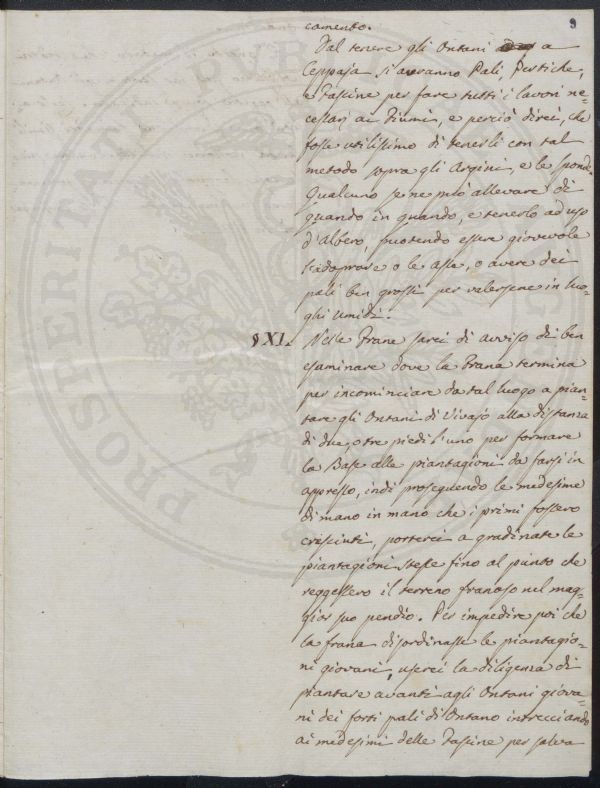 9
camento.
Dal tenere gli Ontani a
Ceppaja si averanno Pali, Pertiche,
e Fascine per fare tutti i lavori ne=
cessarj ai Fiumi, e perciò direi, che
fosse utilissimo di tenerli con tal
metodo sopra gli Argini, e le sponde.
Qualcuno se ne può allevare di
quando in quando, e tenerlo ad uso
d'Albero, potendo essere giovevole
le asse, o avere dei
pali ben grossi per valersene in luo=
ghi umidi.
§ XI. Nelle Frane sarei di avviso di ben
esaminare dove la Frana termina
per incominciare da tal luogo a pian=
tare gli Ontani di Vivajo alla distanza
di due, o tre piedi l'uno per formare
la Base alle piantagioni da farsi in
appresso, indi proseguendo le medesime
di mano in mano che i primi fossero
cresciuti, porterei a gradinate le
piantagioni stesse fino al punto che
reggessero il terreno franoso nel mag=
gior suo pendio. Per impedire poi che
la frana disordinasse le piantagio=
ni giovani, userei la diligenza di
piantare avanti agli Ontani giova=
ni dei forti pali di Ontano intrecciando
ai medesimi delle Fascine per salva
PROSPERITATI PUBLICAE